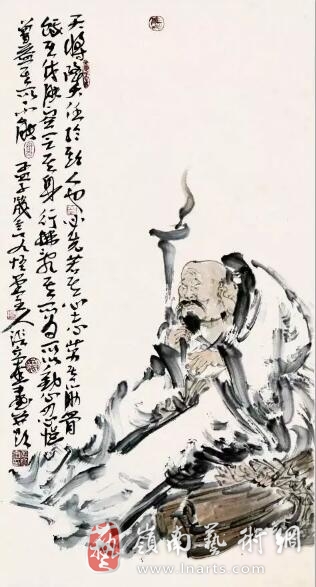 天將降大任於斯人也必先苦其心志勞其筋骨
餓其體膚空乏其身行拂亂其所為所以動心忍性
曾益其所不能 孟子箴言 主人 畫并題
嶺南藝術網
www.lnarts.com